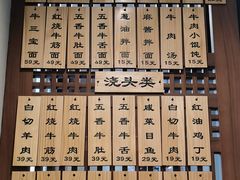 牛三宝面 59元
红烧牛筋面 50元
五香牛肚面 45元
五香牛舌面 45元
葱油拌面 15元
麻酱拌面 15元
牛肉汤 15元
牛肉小馄饨 15元
浇头类
白切羊肉 39元
红烧牛筋 39元
五香牛肚 39元
五香牛舌 39元
咸菜目鱼 29元
白切牛肉 29元
红油鸡丁 19元